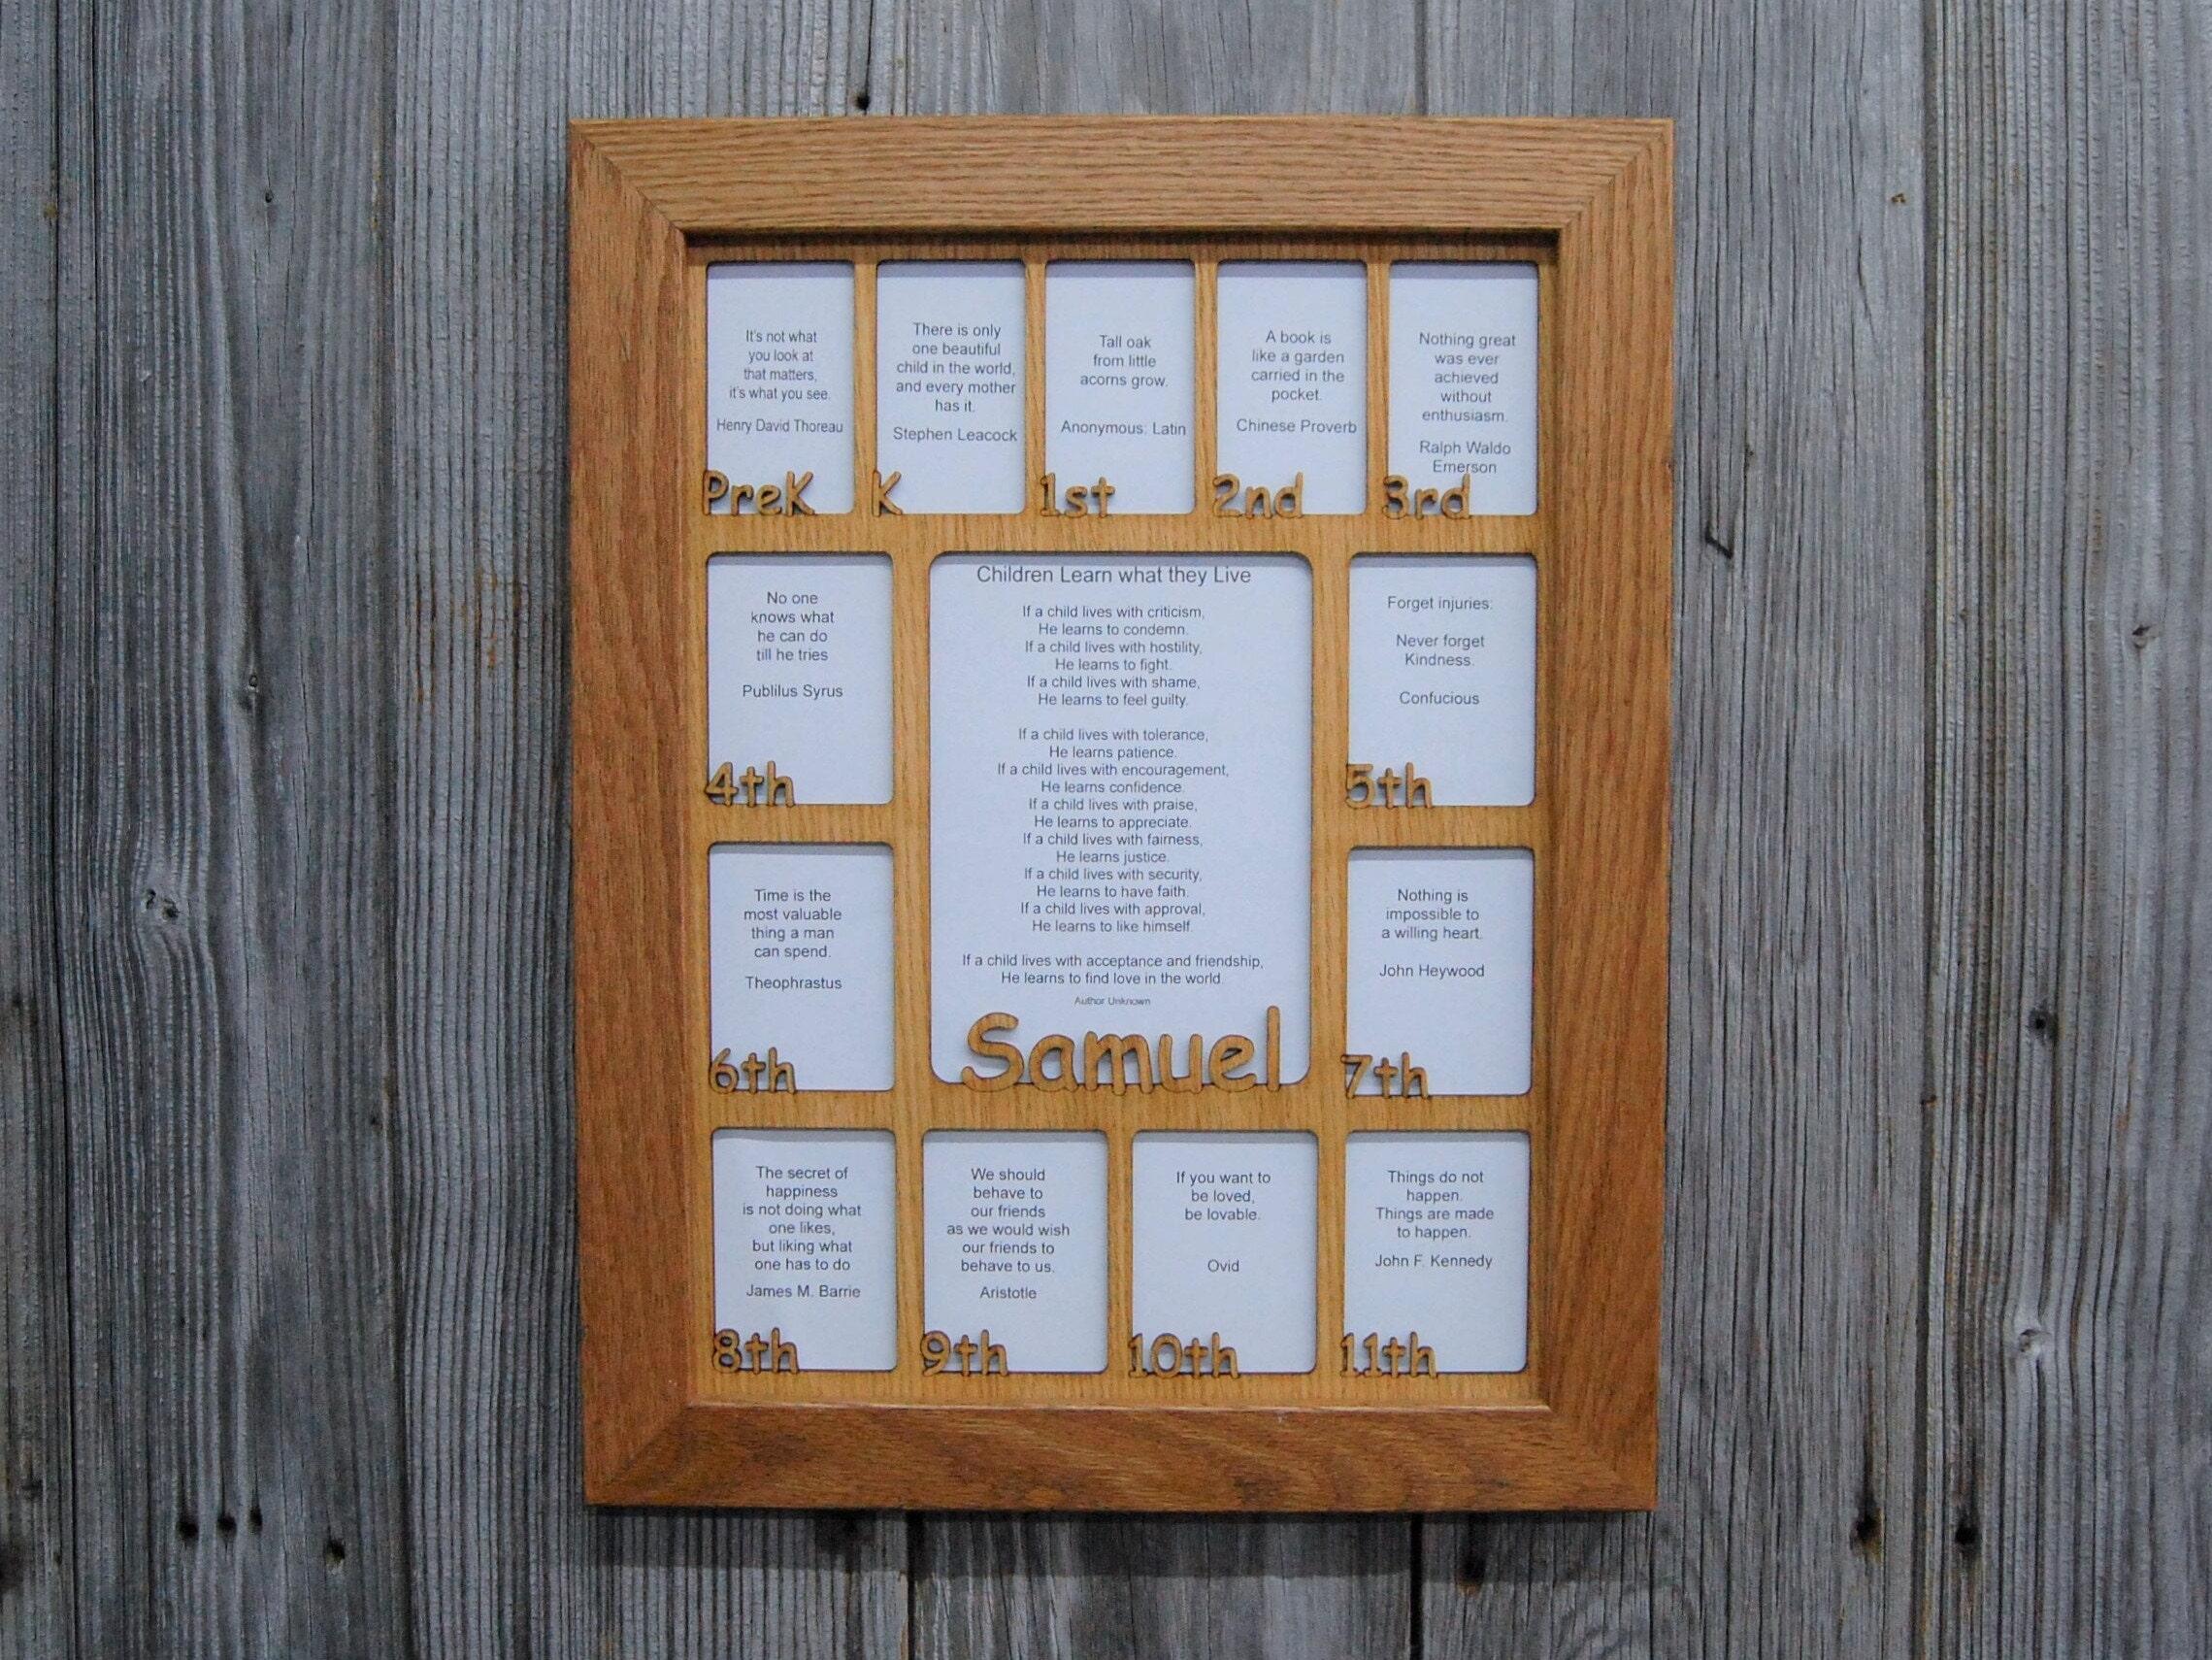 It's not what
you look at
that matters,
it's what you see.
Henry David Thoreau
PreK
There is only
one beautiful
child in the world,
and every mother
has it.
Stephen Leacock
K
Tall oak
from little
acorns grow.
Anonymous: Latin
1st
A book is
like a garden
carried in the
pocket.
Chinese Proverb
2nd
Nothing great
was ever
achieved
without
enthusiasm.
Ralph Waldo
Emerson
3rd
No one
knows what
he can do
till he tries
Publilus Syrus
4th
Children Learn what they Live
If a child lives with criticism,
He learns to condemn.
If a child lives with hostility,
He learns to fight.
If a child lives with shame,
He learns to feel guilty.
If a child lives with tolerance,
He learns patience.
If a child lives with encouragement,
He learns confidence.
If a child lives with praise,
He learns to appreciate.
If a child lives with fairness,
He learns justice.
If a child lives with security,
He learns to have faith.
If a child lives with approval,
He learns to like himself.
If a child lives with acceptance and friendship,
He learns to find love in the world.
Author Unknown
Samuel
Forget injuries:
Never forget
Kindness.
Confucious
5th
Time is the
most valuable
thing a man
can spend.
Theophrastus
6th
Nothing is
impossible to
a willing heart.
John Heywood
7th
The secret of
happiness
is not doing what
one likes,
but liking what
one has to do
James M. Barrie
8th
We should
behave to
our friends
as we would wish
our friends to
behave to us.
Aristotle
9th
If you want to
be loved,
be lovable.
Ovid
10th
Things do not
happen.
Things are made
to happen.
John F. Kennedy
11th